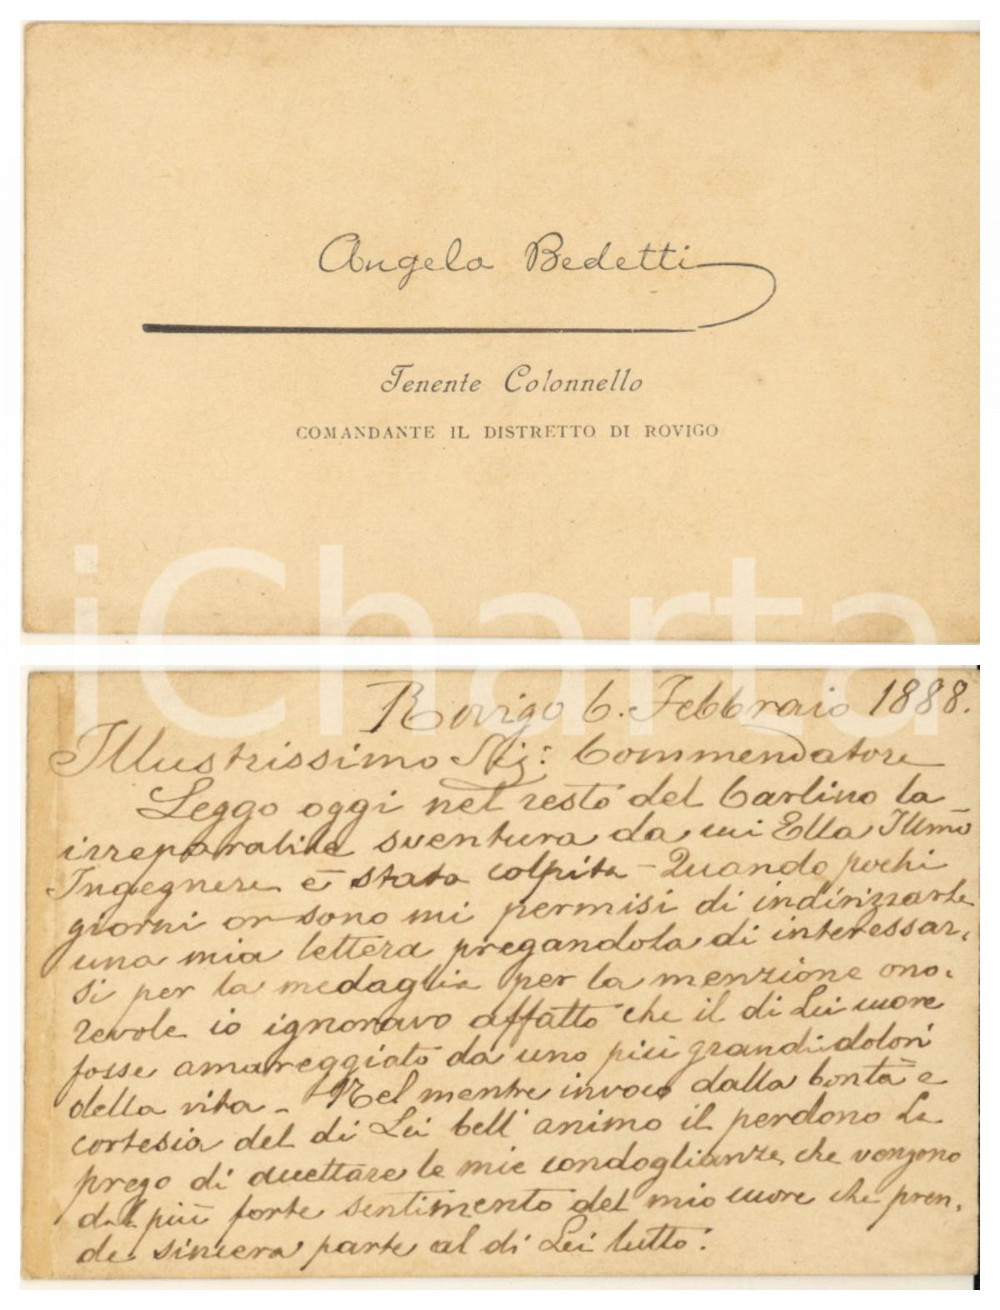 Angelo Bedetti
Tenente Colonnello
COMANDANTE IL DISTRETTO DI ROVIGO
iCharta
Rovigo 6. Febbraio 1888.
Illustrissimo Sig: Commendatore
Leggo oggi nel resto del Carlino la
irreparabile sventura da cui Ella Illmo
Ingegnere è stato colpito - Quando pochi
giorni or sono mi permisi di indirizzarle
una mia lettera pregandola di interessar-
si per la medaglia per la menzione ono-
revole io ignoravo affatto che il di Lei cuore
fosse amareggiato da uno più grandi dolori
della vita - Nel mentre invoco dalla bontà e
cortesia del di Lei bell' animo il perdono La
prego di accettare le mie condoglianze che vengono
dal più forte sentimento del mio cuore che pren-
de sincera parte al di Lei lutto.